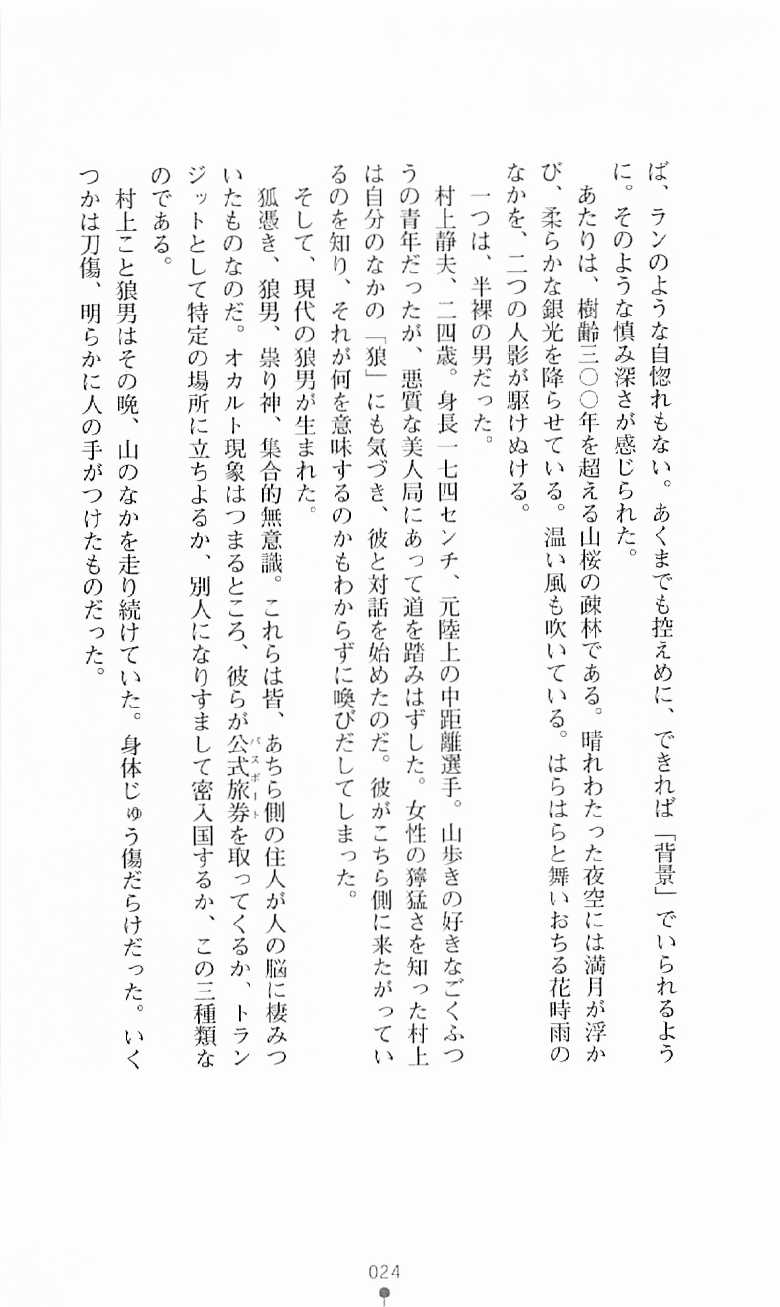 ば、ランのような自惚れもない。あくまでも控えめに、できれば「背景」でいられるよう
に。そのような慎み深さが感じられた。
あたりは、樹齢三〇〇年を超える山桜の疎林である。晴れわたった夜空には満月が浮か
び、柔らかな銀光を降らせている。温い風も吹いている。はらはらと舞いおちる花時雨の
なかを、二つの人影が駆けぬける。
一つは、半裸の男だった。
村上静夫、二四歳。身長一七四センチ、元陸上の中距離選手。山歩きの好きなごくふつ
うの青年だったが、悪質な美人局にあって道を踏みはずした。女性の獰猛さを知った村上
は自分のなかの「狼」にも気づき、彼と対話を始めたのだ。彼がこちら側に来たがってい
るのを知り、それが何を意味するのかもわからずに喚びだしてしまった。
そして、現代の狼男が生まれた。
狐憑き、狼男、祟り神、集合的無意識。これらは皆、あちら側の住人が人の脳に棲みつ
いたものなのだ。オカルト現象はつまるところ、彼らが公式旅券パスポートを取ってくるか、トラン
ジットとして特定の場所に立ちよるか、別人になりすまして密入国するか、この三種類な
のである。
村上こと狼男はその晩、山のなかを走り続けていた。身体じゅう傷だらけだった。いく
つかは刀傷、明らかに人の手がつけたものだった。
024